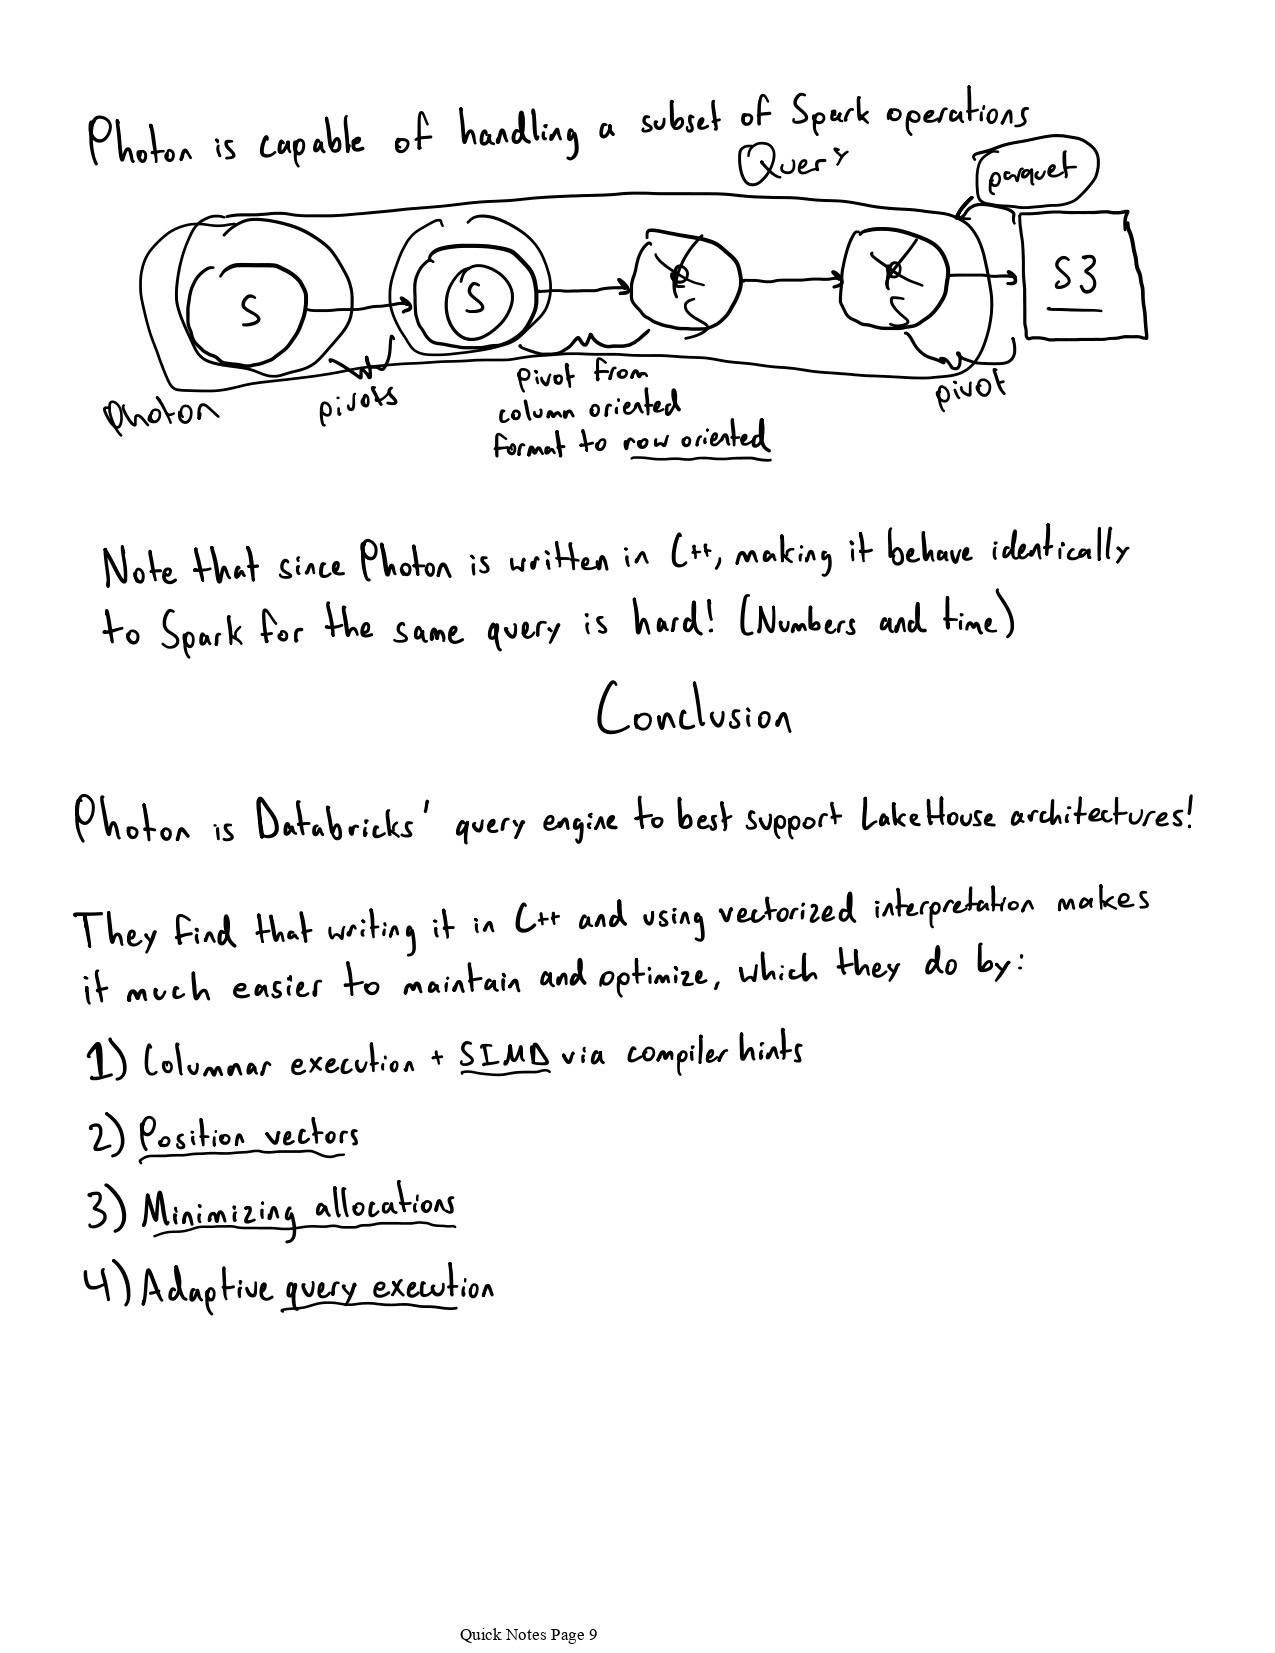 Photon is capable of handling a subset of Spark operations
Query
parquet
S
S
S
S
S3
Photon
pivots
pivot from
column oriented
format to row oriented
pivot
Note that since Photon is written in C++, making it behave identically
to Spark for the same query is hard! (Numbers and time)
Conclusion
Photon is Databricks' query engine to best support LakeHouse architectures!
They find that writing it in C++ and using vectorized interpretation makes
it much easier to maintain and optimize, which they do by:
1) Columnar execution + SIMD via compiler hints
2) Position vectors
3) Minimizing allocations
4) Adaptive query execution
Quick Notes Page 9